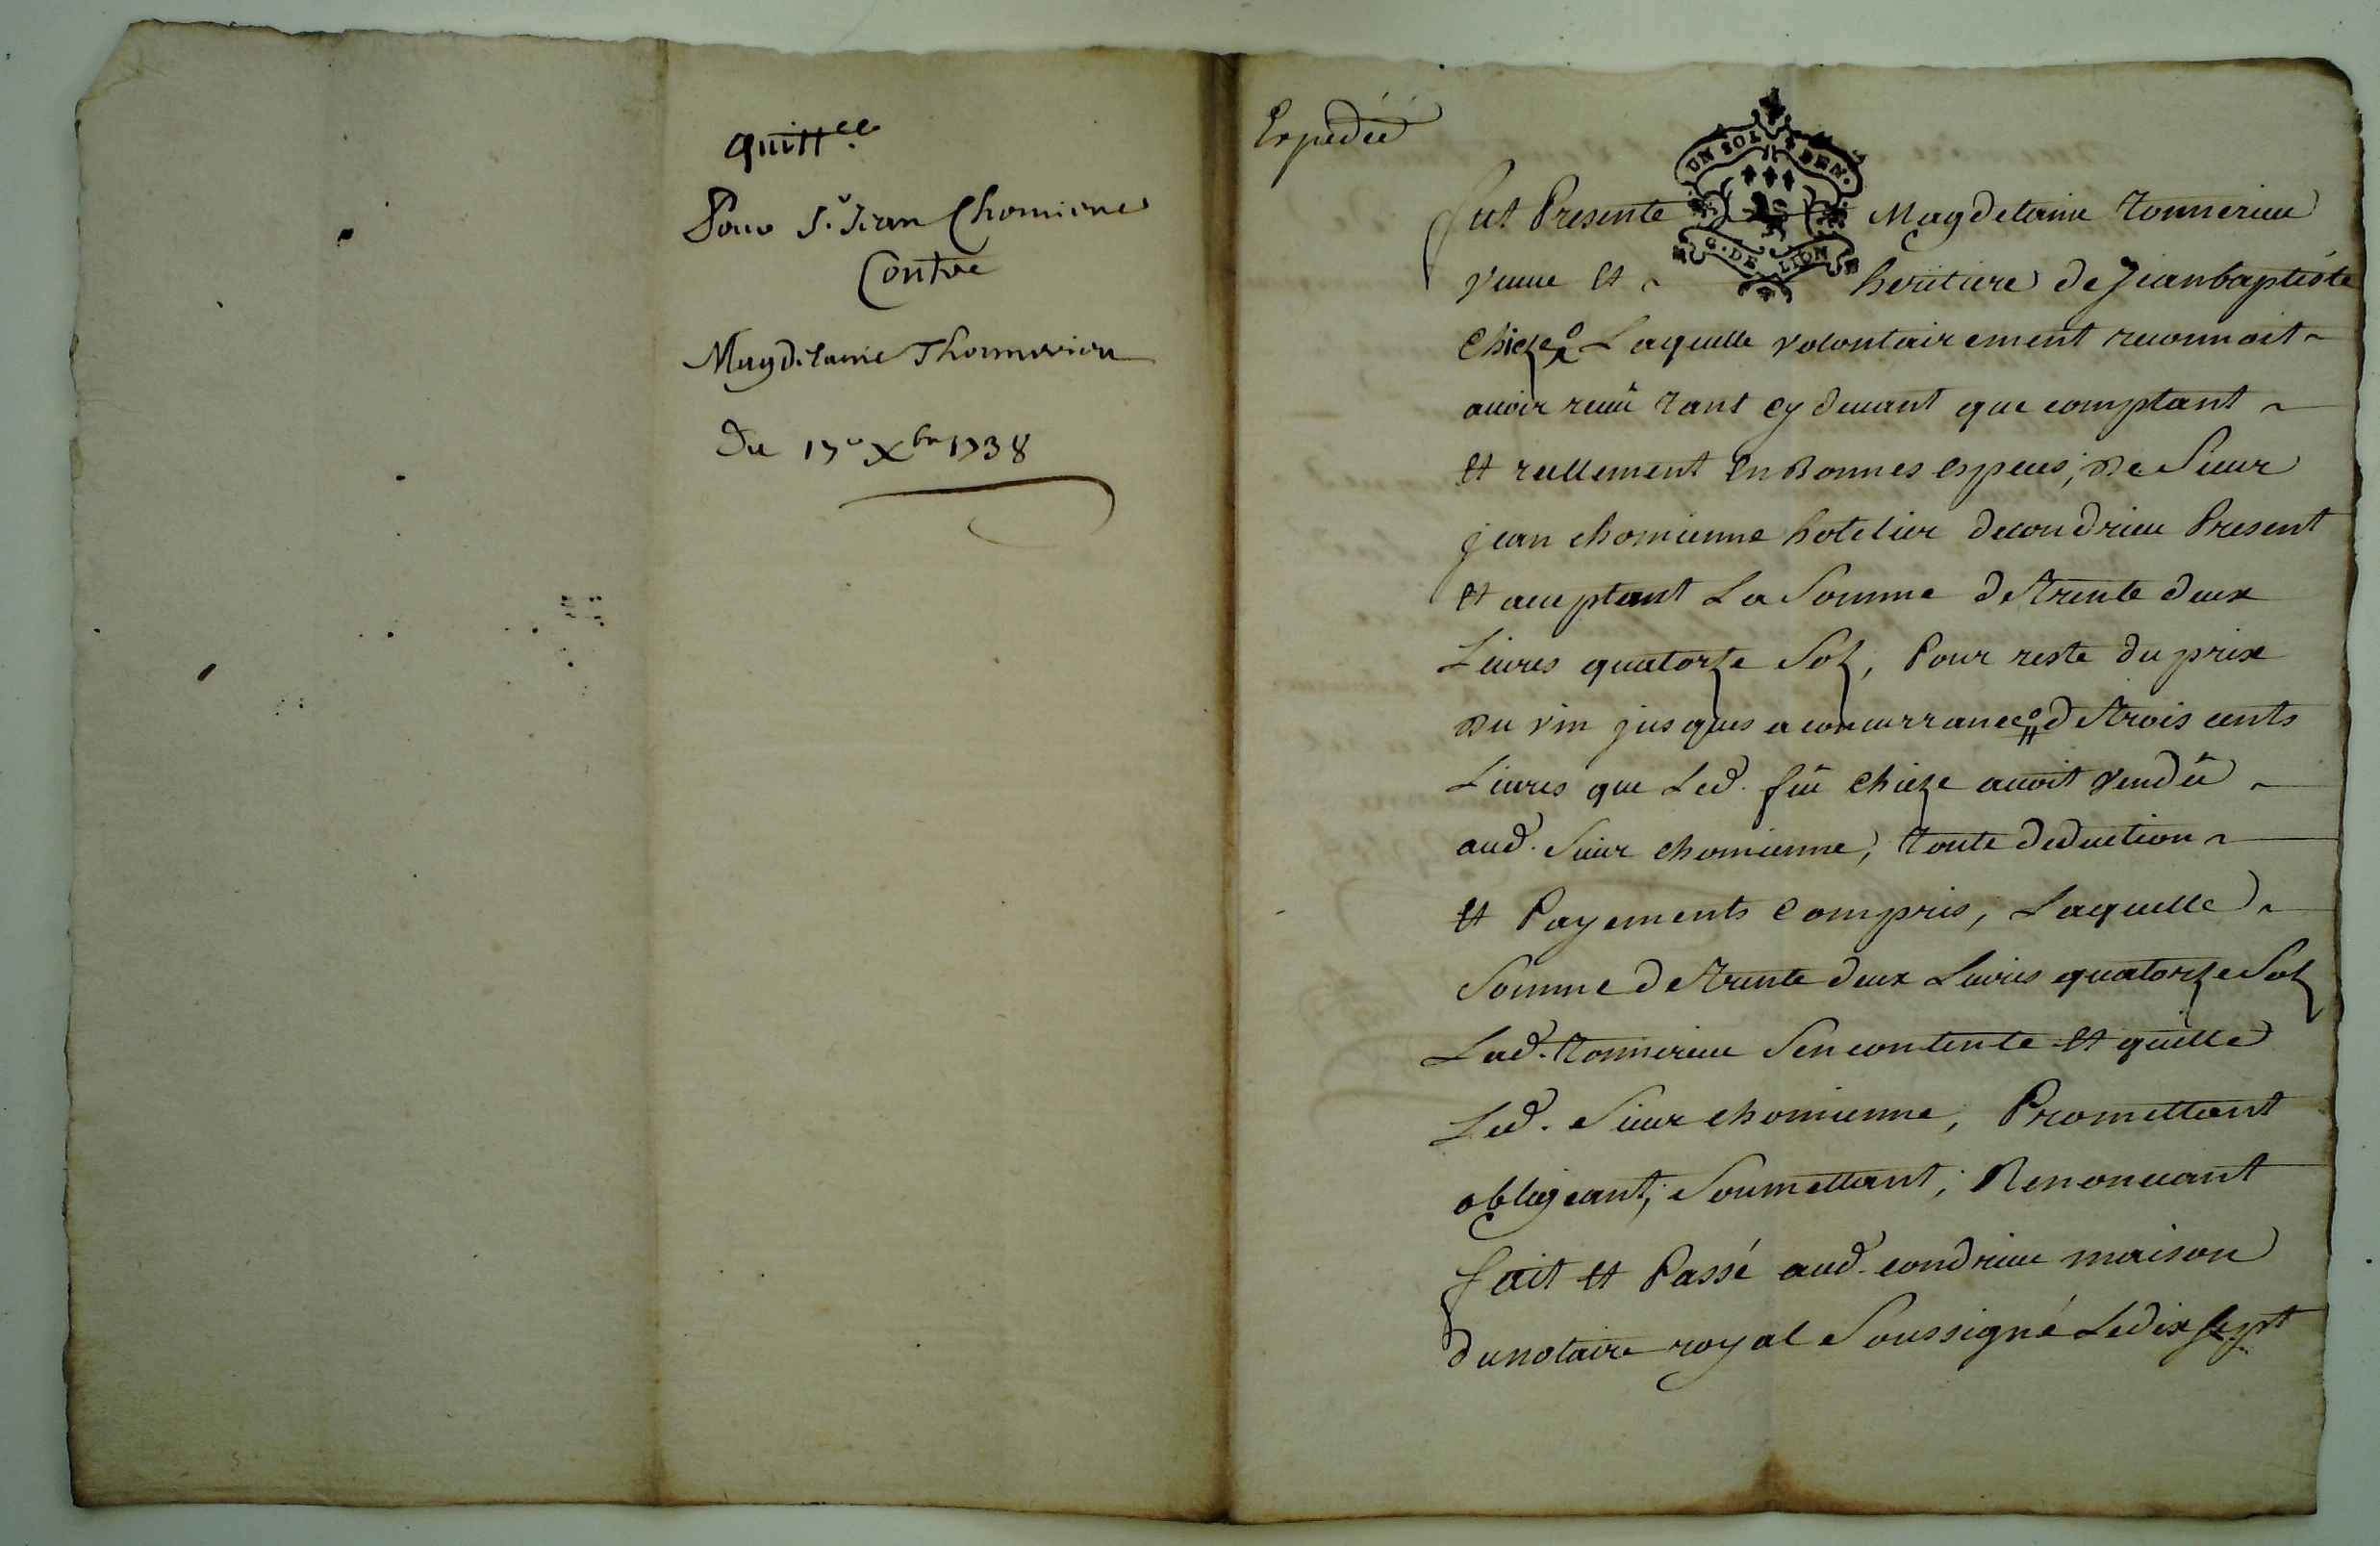 quitt.ce
Pour Sr. Jean Chomiene
Contre
Magdelaine Thomerieu
Du 17e Xbre 1738
Expediéé
UN SOL DEN.
G. DE LION
fut Presente Magdelaine Tomerieu
veuue et heritiere de Jeanbaptiste
Chieze Laquelle volontairement reconnoit
auoir receü tant cy deuant que comptant
et reellement en Bonnes especes, De Sieur
jean chomienne hotelier decondrieu Present
et acceptant La Somme de trente deux
Liures quatorze Solz, Pour reste du prix
Du vin jusques a concurrance de trois cents
Liures que Led. feü chieze auoit vendü
aud. Sieur chomienne, toute deduction
et Payements compris, Laquelle
Somme de trente deux Liures quatorze Solz
Lad. tomerieu Sen contente et quitte
Led. Sieur chomienne, Promettant
obligeant, Soumettant, Renonceant
fait et Passé aud. condrieu maison
du notaire royal Soussigné Le dix sept